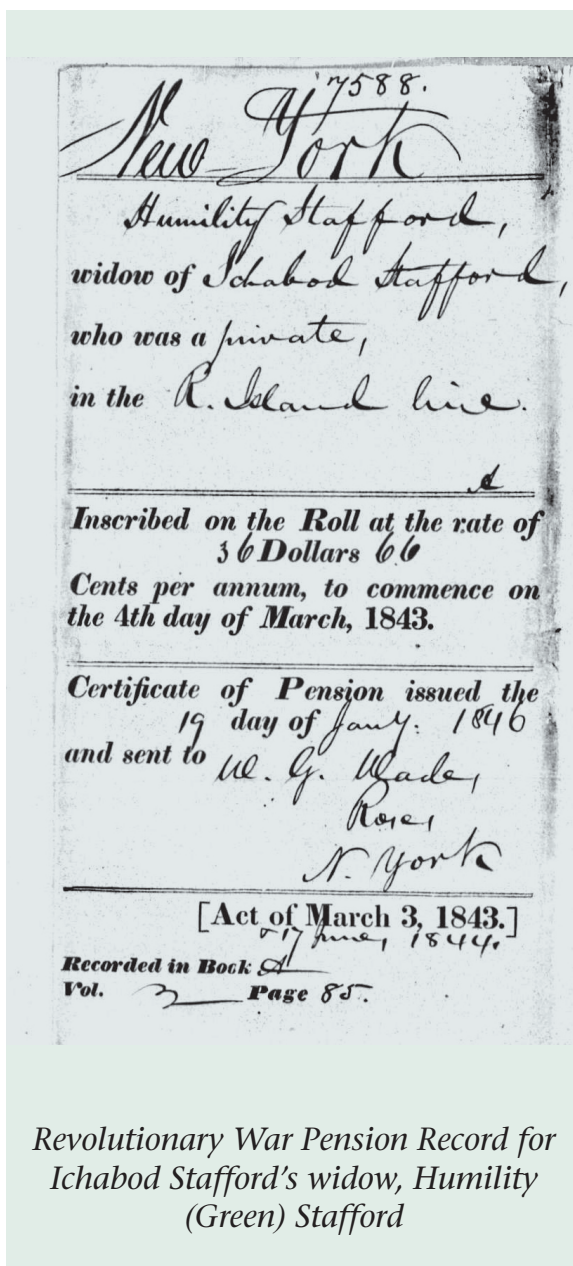 7588.
New York
Humility Stafford,
widow of Ichabod Stafford,
who was a private,
in the R. Island line.
A
Inscribed on the Roll at the rate of
36 Dollars 66
Cents per annum, to commence on
the 4th day of March, 1843.
Certificate of Pension issued the
19 day of Jany. 1846
and sent to W. G. Wade,
Rose,
N. York
[Act of March 3, 1843.]
& 17 June, 1844.
Recorded in Book A
Vol. 2 Page 85.
Revolutionary War Pension Record for
Ichabod Stafford's widow, Humility
(Green) Stafford